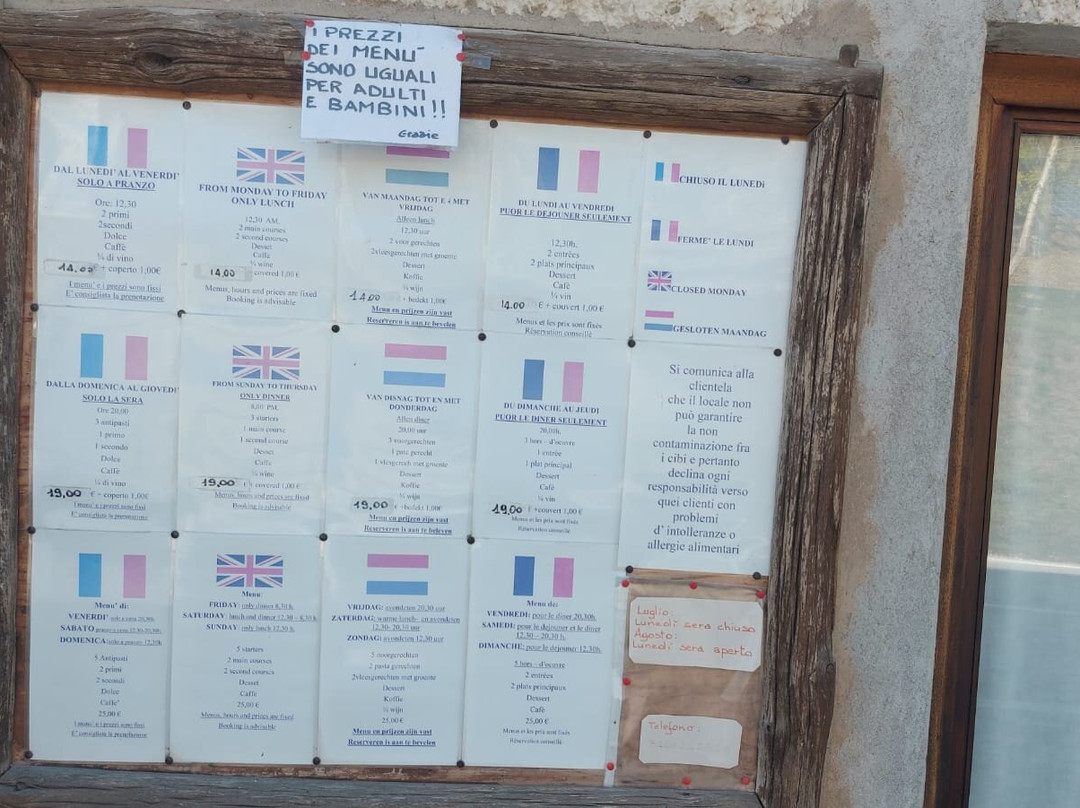 I PREZZI
DEI MENU´
SONO UGUALI
PER ADULTI
E BAMBINI!!
Grazie
DAL LUNEDI' AL VENERDI'
SOLO A PRANZO
Ore: 12,30
2 primi
2secondi
Dolce
Caffè
¼ di vino
14.00 € + coperto 1,00€
I menu' e i prezzi sono fissi
E' consigliata la prenotazione
FROM MONDAY TO FRIDAY
ONLY LUNCH
12,30 AM.
2 main courses
2 second courses
Desset
Caffe
¼ wine
14,00 covered 1,00 €
Menus, hours and prices are fixed
Booking is advisable
VAN MAANDAG TOT EN MET
VRIJDAG
Alleen lunch
12,30 uur
2 voor gerechten
2vleesgerechten met groente
Dessert
Koffie
¼ wijn
14.00 € + bedekt 1,00€
Menu en prijzen zijn vast
Reserveren is aan te bevelen
DU LUNDI AU VENDREDI
PUOR LE DEJOUNER SEULEMENT
12,30h.
2 entrèes
2 plats principaux
Dessert
Cafè
¼ vin
14.00 € + couvert 1,00 €
Menus et les prix sont fixès
Rèservation conseillè
CHIUSO IL LUNEDì
FERME' LE LUNDI
CLOSED MONDAY
GESLOTEN MAANDAG
DALLA DOMENICA AL GIOVEDI'
SOLO LA SERA
Ore 20,00
3 antipasti
1 primo
1 secondo
Dolce
Caffè
¼ di vino
19,00 € + coperto 1,00€
I menu' e i prezzi sono fissi
E' consigliata la prenotazione
FROM SUNDAY TO THURSDAY
ONLY DINNER
8,00 PM.
3 starters
1 main course
1 second course
Desset
Caffe
¼ wine
19,00 € + covered 1,00 €
Menus, hours and prices are fixed
Booking is advisable
VAN DISNAG TOT EN MET
DONDERDAG
Allen diner
20,00 uur
3 voorgerechten
1 pate gerecht
1 vlesgerech met groente
Dessert
Koffie
¼ wijn
19,00 € +bedekt 1,00€
Menu en prijzen zijn vast
Reserveren is aan te beleven
DU DIMANCHE AU JEUDI
PUOR LE DINER SEULEMENT
20,00h.
3 hors – d'oeuvre
1 entrèe
1 plat principal
Dessert
Cafè
¼ vin
19,00 € +couvert 1,00 €
Menus et les prix sont fixès
Rèservation conseillè
Si comunica alla
clientela
che il locale non
può garantire
la non
contaminazione fra
i cibi e pertanto
declina ogni
responsabilità verso
quei clienti con
problemi
d' intolleranze o
allergie alimentari
Menu' di:
VENERDI': solo a cena 20,30h.
SABATO pranzo e cena 12,30-20,30h.
DOMENICA: solo a pranzo 12,30h
5 Antipasti
2 primi
2 secondi
Dolce
Caffe'
25,00 €
I menu' e i prezzi sono fissi
E' consigliata la prenotazione
Menu:
FRIDAY: only dinner 8,30 h.
SATURDAY: lunch and dinner 12,30 – 8,30 h.
SUNDAY: only lunch 12,30 h.
5 starters
2 main courses
2 second courses
Desset
Caffe
25,00 €
Menus, hours and prices are fixed
Booking is advisable
VRIJDAG: avondeten 20,30 uur
ZATERDAG: warme lunch- en avondeten
12,30- 20,30 uur
ZONDAG: avondeten 12,30 uur
5 voorgerechten
2 pasta gerechten
2vleesgerechten met groente
Dessert
Koffie
¼ wijn
25,00 €
Menu en prijzen zijn vast
Reserveren is aan te bevelen
Menu de:
VENDREDI: pour le diner 20,30h.
SAMEDI: pour le dejouner et le diner
12,30 – 20,30 h.
DIMANCHE: pour le dejouner 12,30h.
5 hors – d'oeuvre
2 entrèes
2 plats principaux
Dessert
Cafè
25,00 €
Menus et les prix sont fixès
Rèservation conseillè
Luglio:
Lunedì sera chiuso
Agosto:
Lunedì sera aperto
Telefono: